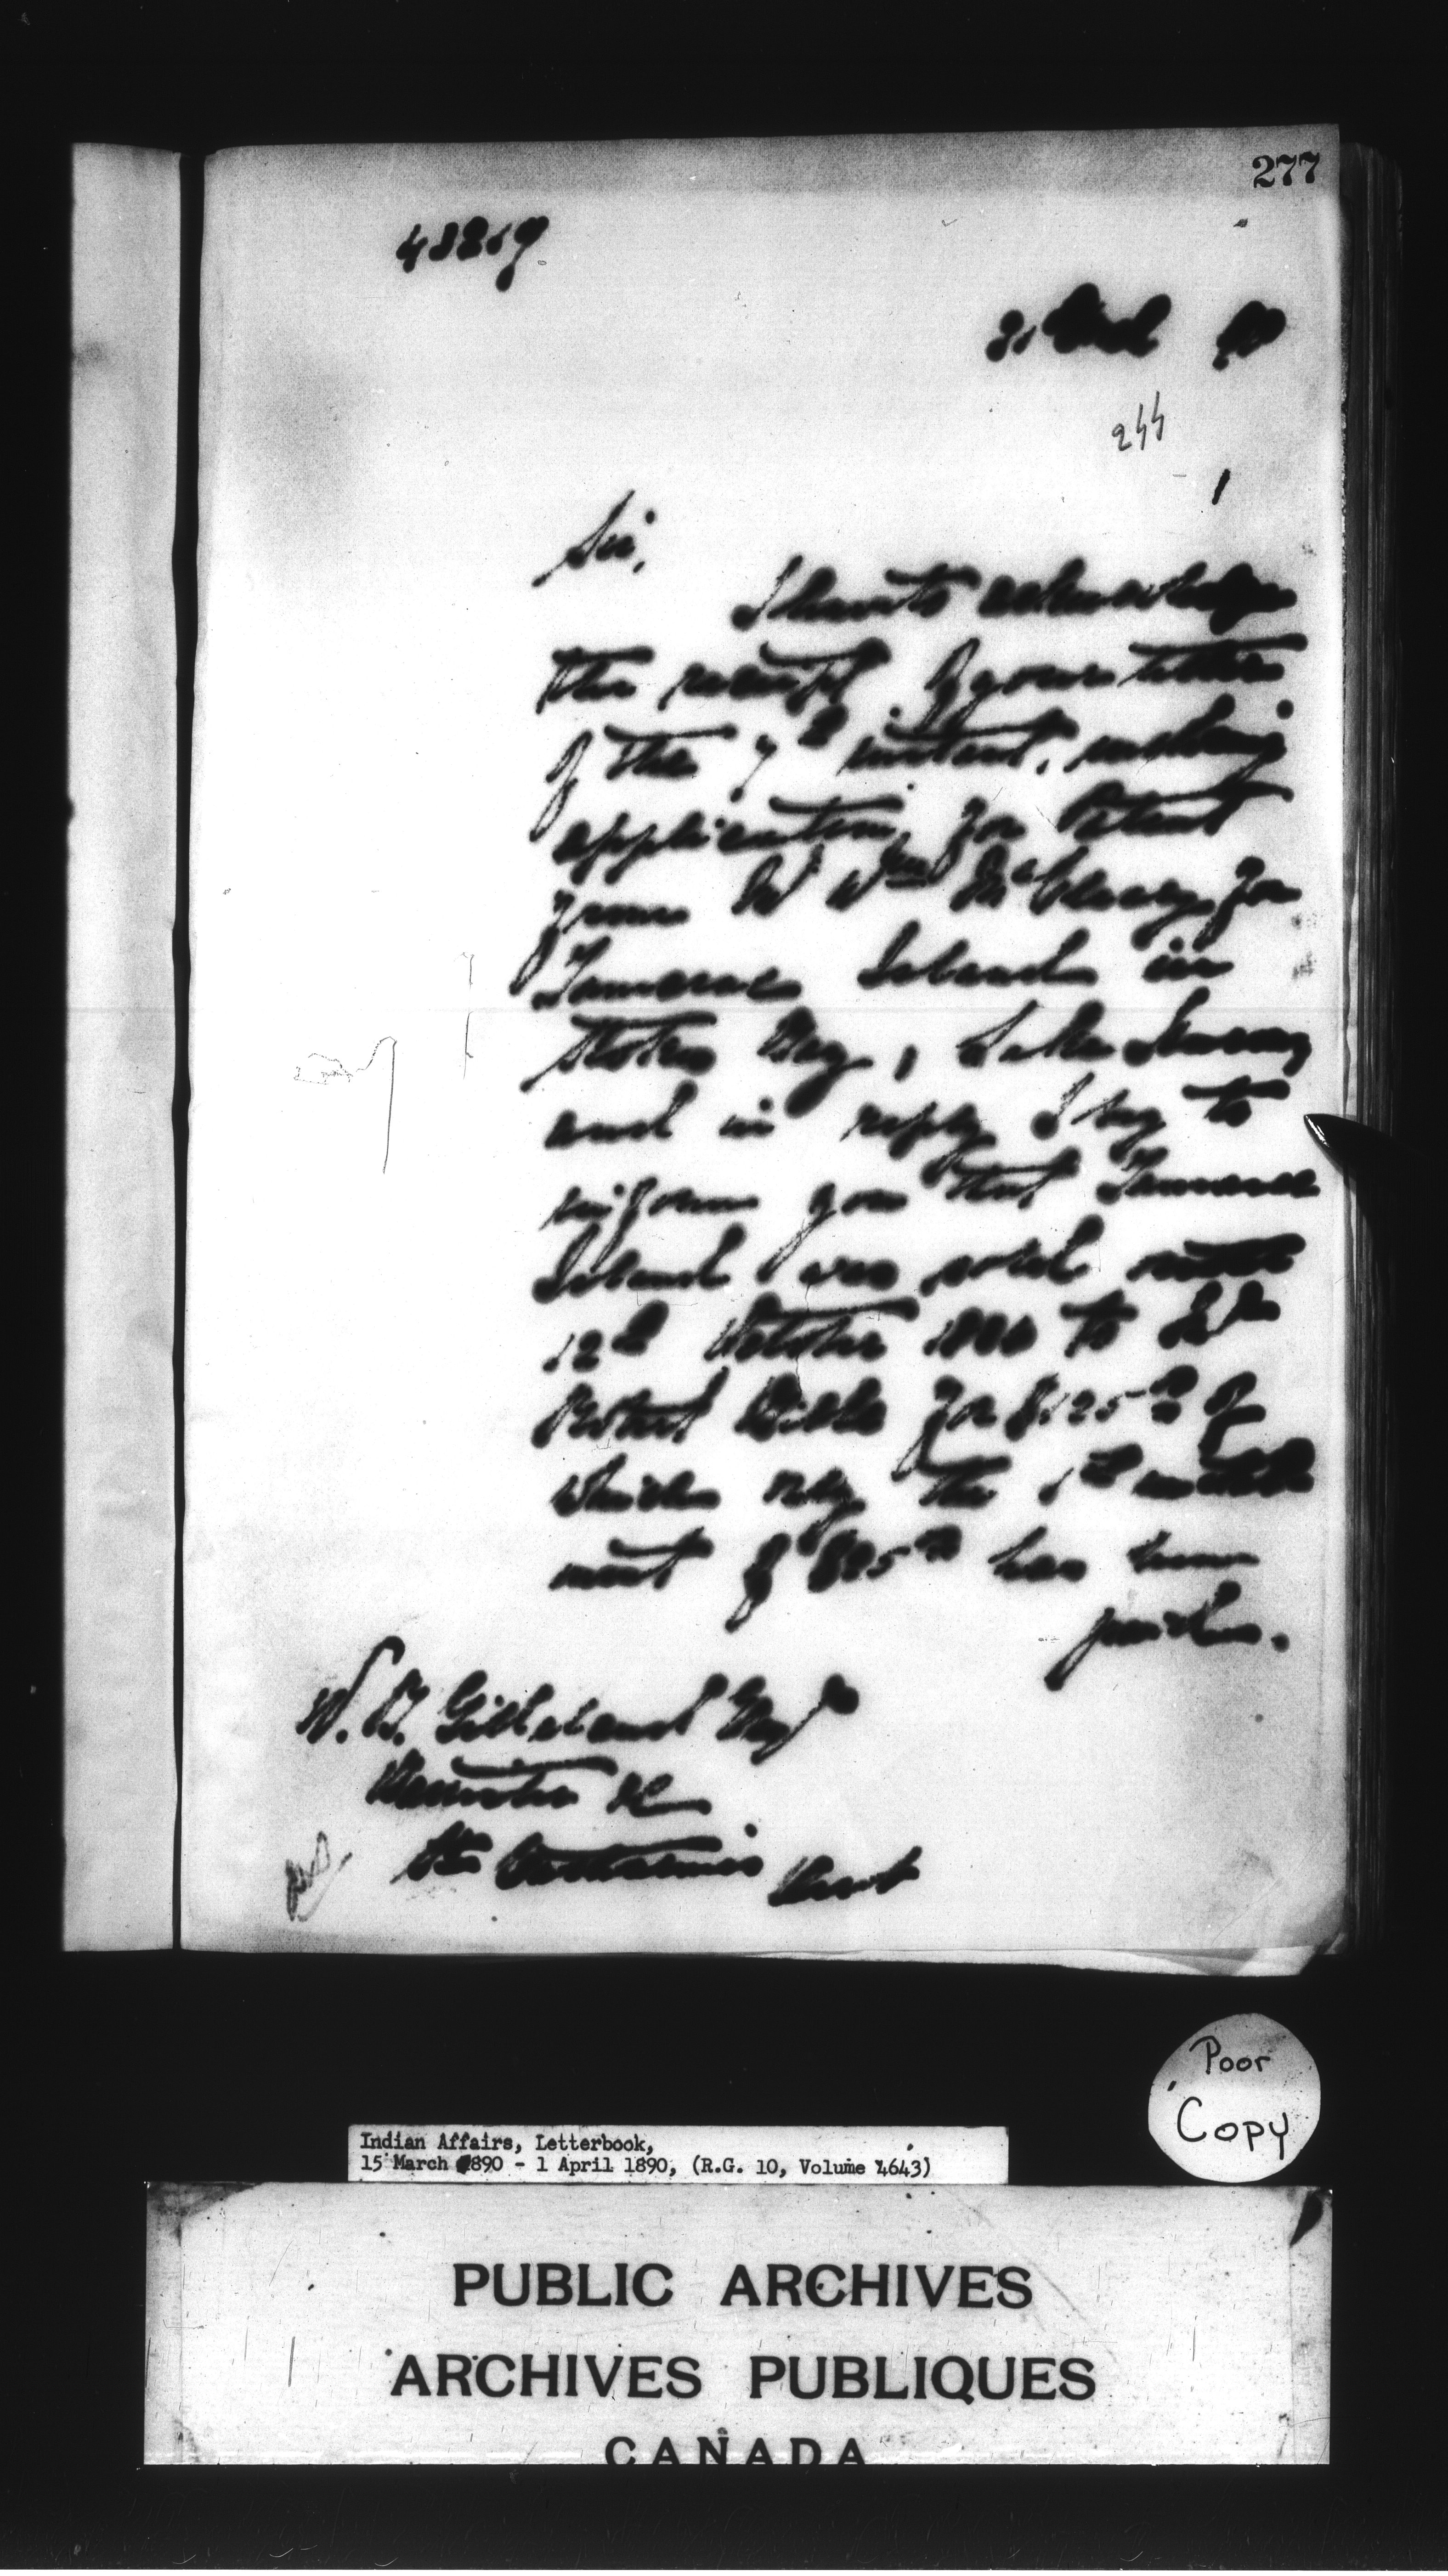 277
48219
21 Mch 90
244
Sir,
I have to acknowledge
the receipt of your letter
of the 7th instant, making
application for Patent
from Wm McCleary for
Tamarac Island in
Stokes Bay, Lake Huron
and in reply I beg to
inform you that Tamarac
Island was sold on the
12th October 1886 to
Robert for $125.00 of
which only the 1st instal
ment of $25.00 has been
paid.
W. B. Gilleland Esqr
Barrister &c
St. Catharines Ont
Poor
Copy
Indian Affairs, Letterbook,
15 March 1890 - 1 April 1890, (R.G. 10, Volume 4643)
PUBLIC ARCHIVES
ARCHIVES PUBLIQUES
CANADA